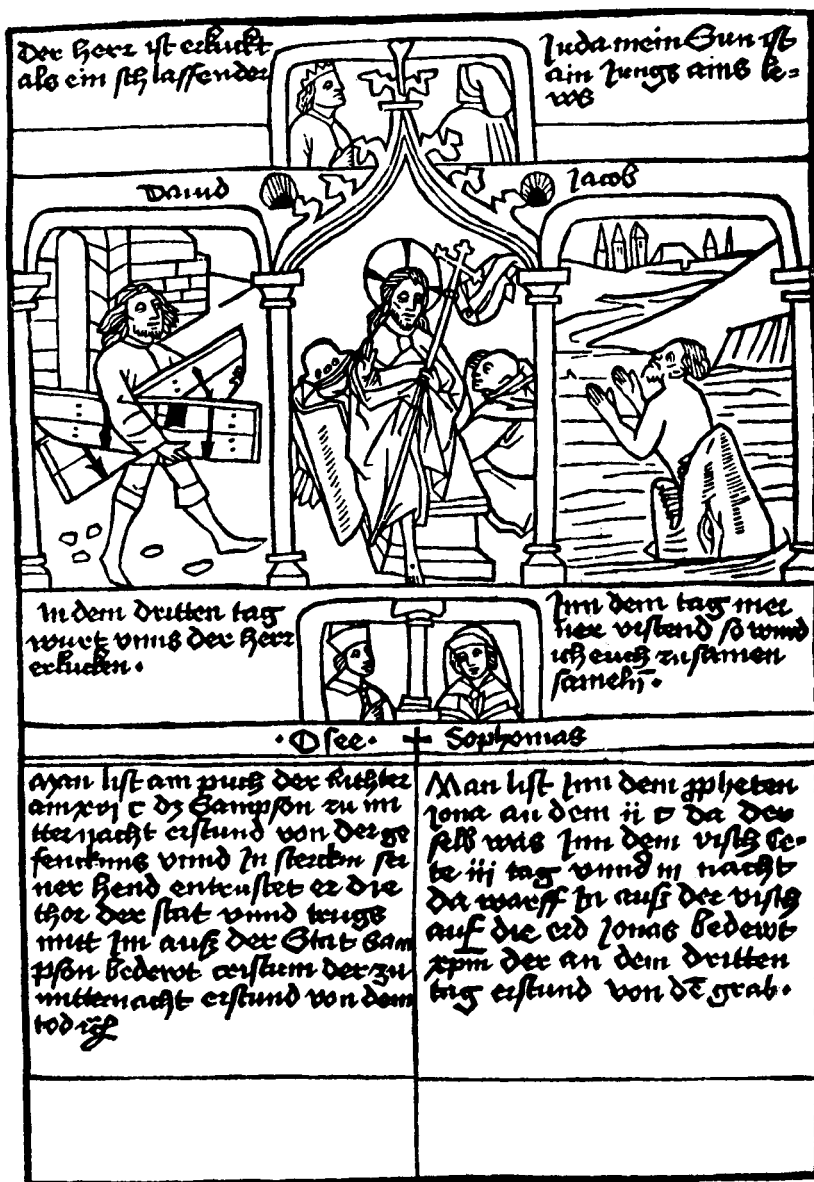 Der herr ist erkuckt
als ein schlaffender
Juda mein Sun ist
ain Jungs ains le-
ws
Dauid
Jacob
In dem dritten tag
wurt vnns der herr
erkucken.
Inn dem tag mei
ner vistend so wurd
ich euch zusamen
sameln̄.
·Osee·
Sophonias
Man list am puch der Richter
am xvj c dz Sampson zu mi
tternacht erstund von der ge
fencknus vnnd In sterckin sei
ner hend entrustet er die
thor der stat vnnd trugs
mitt Im auß der Stat Sam
pson bedewt cristum der zu
mitternacht erstund von dem
tod
Man list Inn dem ꝓpheten
Jona an dem ii c da der
selb was Inn dem visch le-
te iij tag vnnd iij nacht
da warff In auß der visch
auf die erd Jonas bedewt
xp̄m der an dem dritten
tag erstund von dē grab.